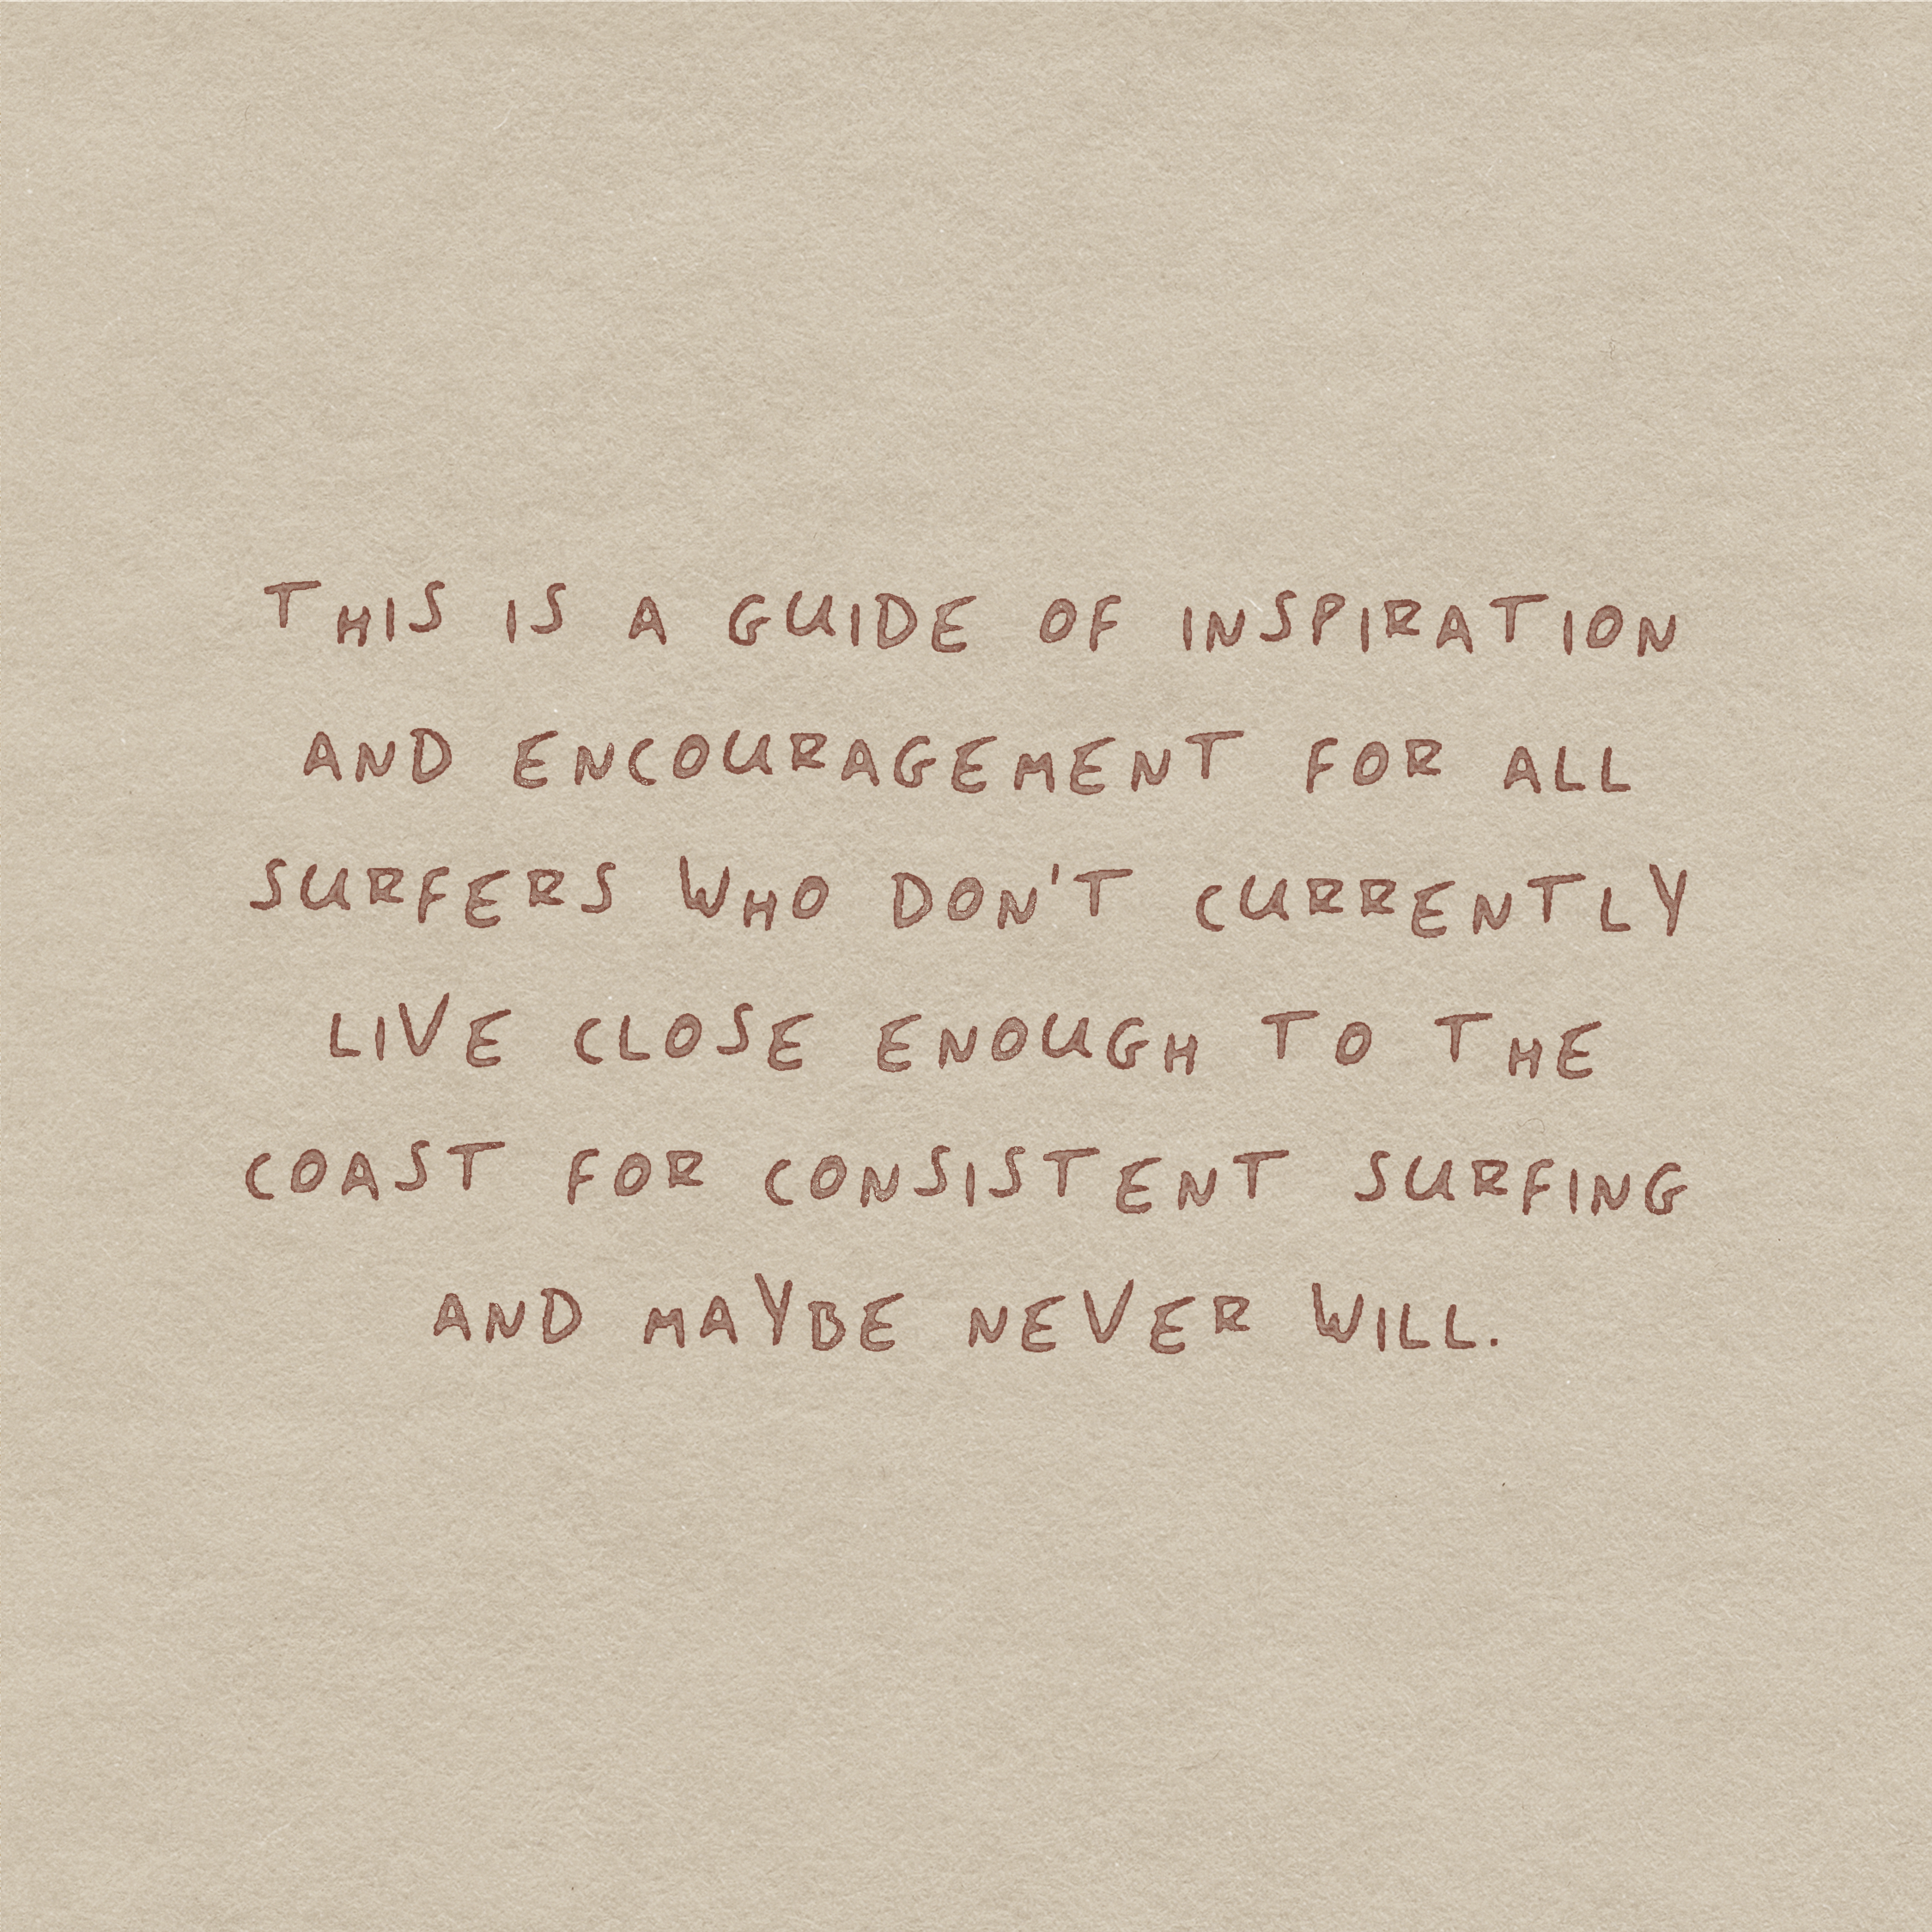 THIS IS A GUIDE OF INSPIRATION
AND ENCOURAGEMENT FOR ALL
SURFERS WHO DON'T CURRENTLY
LIVE CLOSE ENOUGH TO THE
COAST FOR CONSISTENT SURFING
AND MAYBE NEVER WILL.